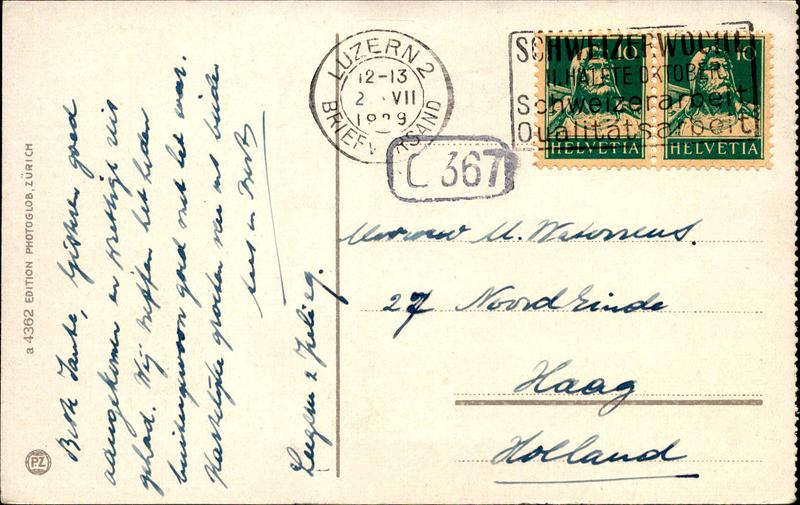 a 4362 EDITION PHOTOGLOB, ZÜRICH
PZ
Beste Tante, Gisteren goed
aangekomen en prettige reis
gehad. Wij treffen het heden
buitengewoon goed met het weer.
Hartelijke groeten van ons beiden
Luzern 2 Juli 29.
LUZERN 2
12-13
2 VII
1929
BRIEFVERSAND
SCHWEIZERWOCHE
II. HÄLFTE OKTOBER
Schweizerarbeit
Qualitätsarbeit
10
HELVETIA
10
HELVETIA
C 367
Mevrouw M.
27 Noordeinde
Haag
Holland